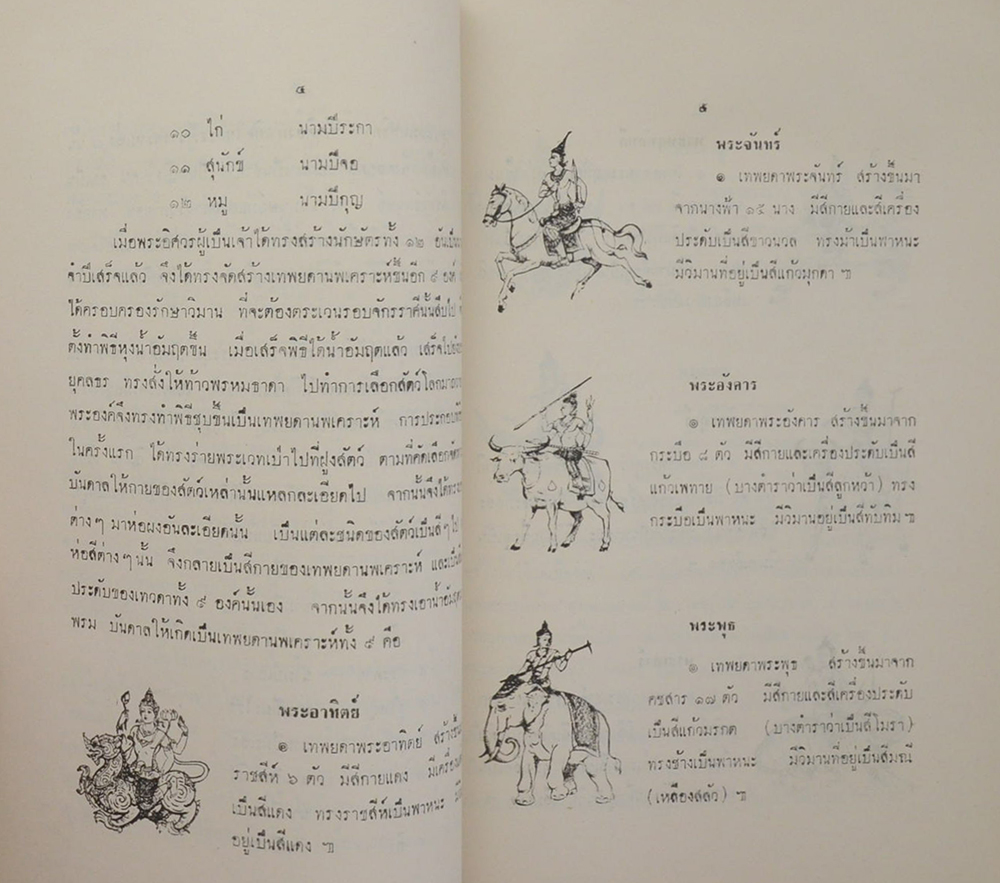 ๔
๑๐ ไก่ นามปีระกา
๑๑ สุนักข์ นามปีจอ
๑๒ หมู นามปีกุญ
เมื่อพระอิศวรผู้เป็นเจ้าได้ทรงสร้างนักษัตรทั้ง ๑๒ อันเป็น
จำปีเสร็จแล้ว จึงได้ทรงจัดสร้างเทพยดานพเคราะห์ขึ้นอีก ๙ องค์
ได้ครอบครองรักษาวิมาน ที่จะต้องตระเวนรอบจักรราศีนั้นสืบไป
ตั้งทำพิธีหุงน้ำอัมฤตขึ้น เมื่อเสร็จพิธีได้น้ำอัมฤตแล้ว เสร็จไป
ยุคลธร ทรงสั่งให้ท้าวพรหมธาดา ไปทำการเลือกสัตว์โลกมา
พระองค์จึงทรงทำพิธีชุบขึ้นเป็นเทพยดานพเคราะห์ การประกอบ
ในครั้งแรก ได้ทรงร่ายพระเวทเป่าไปที่ฝูงสัตว์ ตามที่คัดเลือก
บันดาลให้กายของสัตว์เหล่านั้นแหลกละเอียดไป จากนั้นจึงได้
ต่างๆ มาห่อผงอันละเอียดนั้น เป็นแต่ละชนิดของสัตว์เป็นสีๆ ไป
ห่อสีต่างๆ นั้น จึงกลายเป็นสีกายของเทพยดานพเคราะห์ และเป็น
ประดับของเทวดาทั้ง ๙ องค์นั้นเอง จากนั้นจึงได้ทรงเอาน้ำอัมฤต
พรม บันดาลให้เกิดเป็นเทพยดานพเคราะห์ทั้ง ๙ คือ
พระอาทิตย์
๑ เทพยดาพระอาทิตย์ สร้างขึ้น
ราชสีห์ ๖ ตัว มีสีกายแดง มีเครื่อง
เป็นสีแดง ทรงราชสีห์เป็นพาหนะ
อยู่เป็นสีแดง ฯ
๕
พระจันทร์
๑ เทพยดาพระจันทร์ สร้างขึ้นมา
จากนางฟ้า ๑๕ นาง มีสีกายและสีเครื่อง
ประดับเป็นสีขาวนวล ทรงม้าเป็นพาหนะ
มีวิมานที่อยู่เป็นสีแก้วมุกดา ฯ
พระอังคาร
๑ เทพยดาพระอังคาร สร้างขึ้นมาจาก
กระบือ ๘ ตัว มีสีกายและเครื่องประดับเป็นสี
แก้วเพทาย (บางตำราว่าเป็นสีลูกหว้า) ทรง
กระบือเป็นพาหนะ มีวิมานอยู่เป็นสีทับทิม ฯ
พระพุธ
๑ เทพยดาพระพุธ สร้างขึ้นมาจาก
คชสาร ๑๗ ตัว มีสีกายและสีเครื่องประดับ
เป็นสีแก้วมรกต (บางตำราว่าเป็นสีโมรา)
ทรงช้างเป็นพาหนะ มีวิมานที่อยู่เป็นสีมณี
(เหลืองสลัว) ฯ